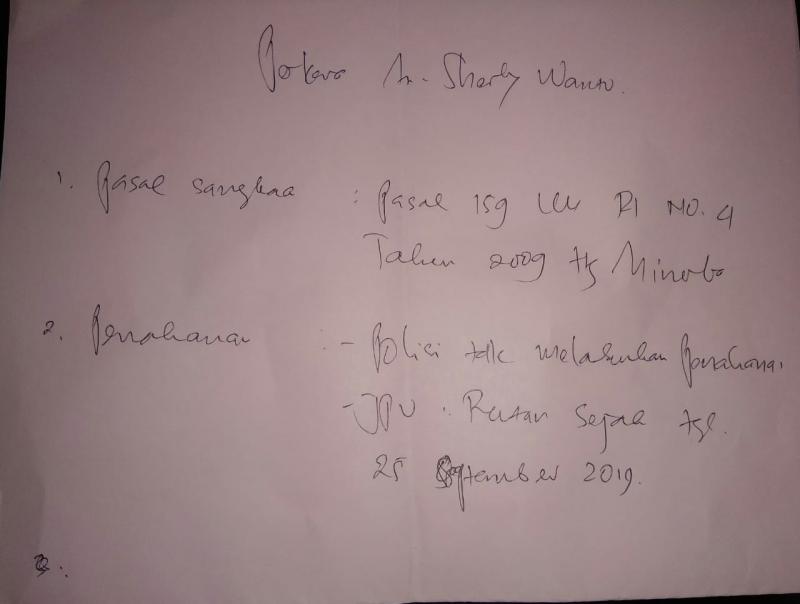 Perkara An. Sherly Wanto.
1. Pasal sangkaan : Pasal 159 UU RI NO. 4
Tahun 2009 ttg Minerba
2. Penahanan : - Polisi tdk melakukan penahanan.
- JPU : Rutan sejak tgl.
25 September 2019.
3.